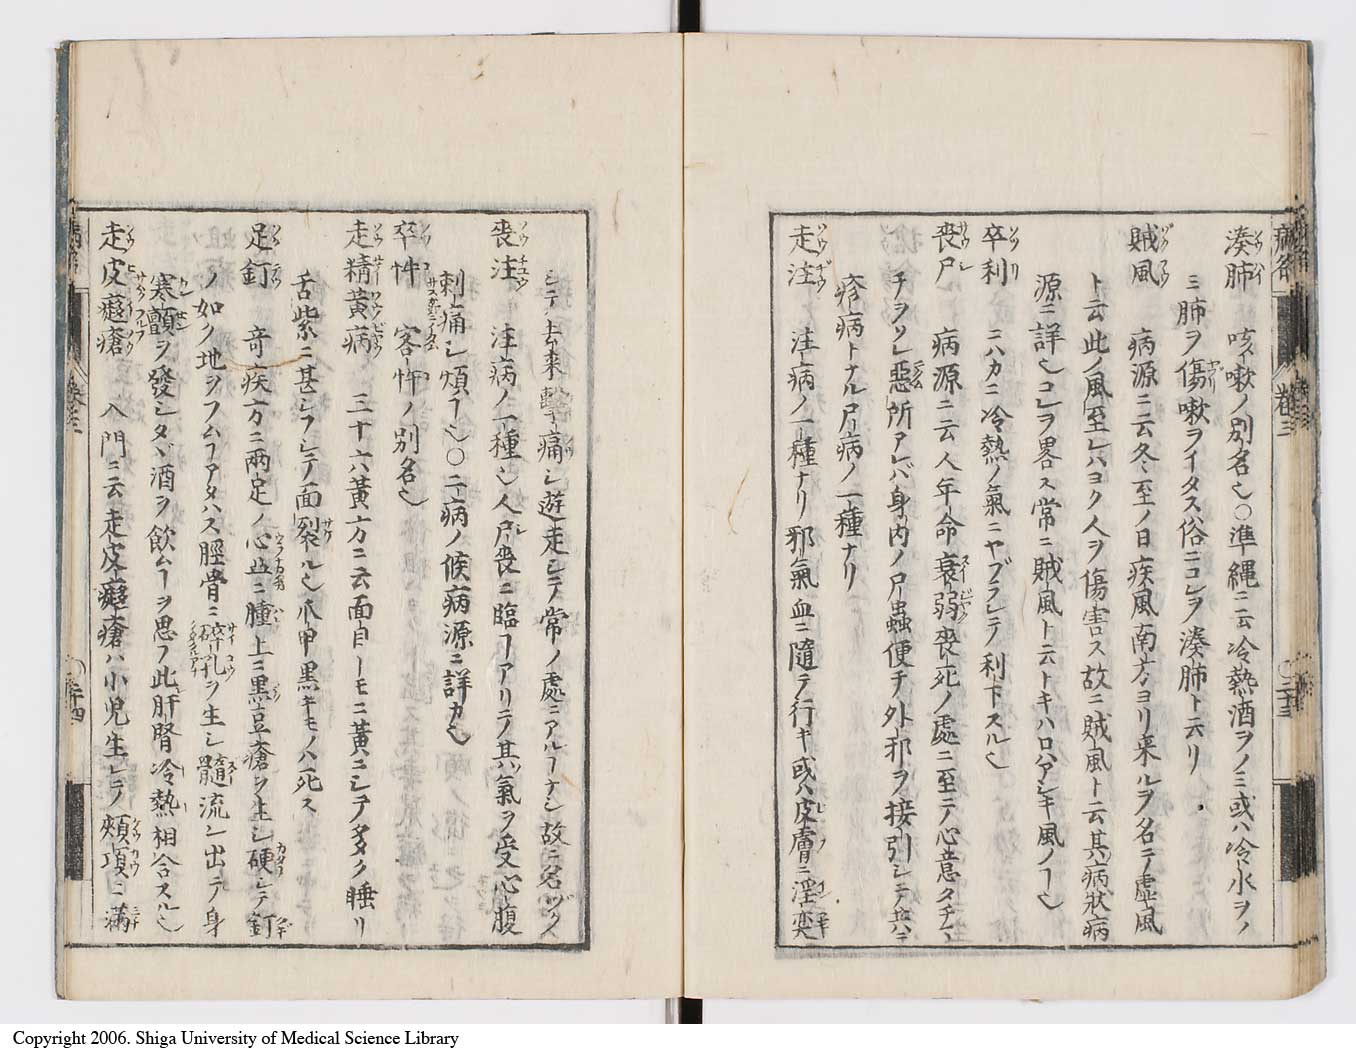 湊肺 咳嗽ノ別名也○準縄ニ云冷熱酒ヲノミ或ハ冷水ヲノ
ミ肺ヲ傷嗽ヲイタス俗ニコレヲ湊肺ト云リ
賊風 病源ニ云冬至ノ日疾風南方ヨリ来ルヲ名テ虚風
ト云此ノ風至レハヨク人ヲ傷害ス故ニ賊風ト云其病状病
源ニ詳也コレヲ畧ス常ニ賊風ト云トキハロアシキ風ノ也
卒利 ニハカニ冷熱ノ氣ニヤブラレテ利下スル也
喪尸 病源ニ云人年命衰弱喪死ノ處ニ至テ心意タチ
チヲソレ悪所アレバ身内ノ尸蟲便チ外邪ヲ接引シテ共ニ
疹病トナル尸病ノ一種ナリ
走注 注病ノ一種ナリ邪氣血ニ隨テ行キ或ハ皮膚ニ淫奕
シテ去来擊痛シ遊走シテ常ノ處ニアルナシ故ニ名ヅク
喪注 注病ノ一種也人尸喪ニ臨アリテ其氣ヲ受心腹
刺痛シ煩也○二病ノ候病源ニ詳カ也
卒忤 客忤ノ別名也
走精黄病 三十六黄方ニ云面目トモニ黄ニシテタク睡リ
舌紫ニ甚シフシテ面裂ル也爪甲黒キモノハ死ス
足釘 奇疾方ニ兩足ノ心血ニ腫上ニ黒豆瘡ヲ生シ硬シテ釘
ノ如ク地ヲフムアタハス脛骨ニ碎孔ヲ生シ髓流レ出テ身
寒顫ヲ發シタヾ酒ヲ飲ムヲ思フ此肝腎冷熱相合スル也
走皮㿔瘡 入門ニ云走皮㿔瘡ハ小児生レテ頬項ニ滿
巻三
廿三
廿四
Copyright 2006. Shiga University of Medical Science Library